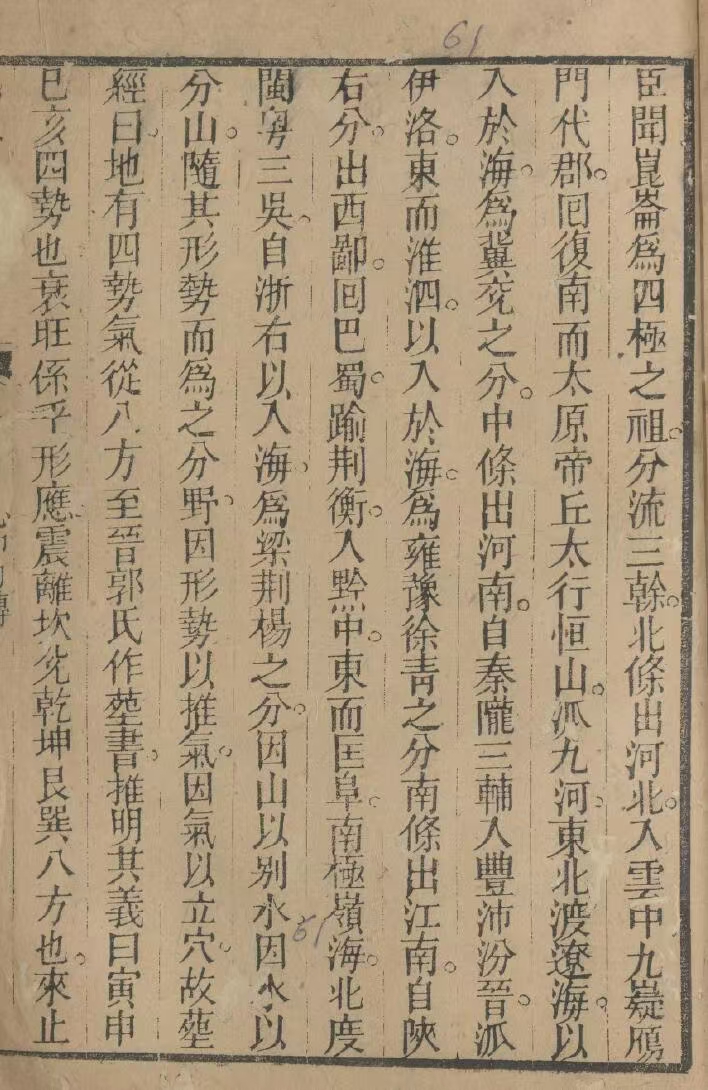 61
臣聞崑崙爲四極之祖。分流三榦。北條出河北。入雲中九嶷鴈
門代郡。回復南而太原帝丘太行恒山。派九河。東北渡遼海。以
入於海。爲冀兗之分。中條出河南。自秦隴三輔入豐沛汾晉。派
伊洛。東而淮泗。以入於海。爲雍豫徐青之分。南條出江南。自陝
右。分出西鄙。回巴蜀。踰荆衡。入黔中。東而匡阜。南極嶺海。北度
閩粵三吳。自浙右以入海。爲梁荆楊之分。因山以别水因水以
分山。隨其形勢而爲之分野。因形勢以推氣。因氣以立穴。故塟
經曰。地有四勢氣從八方至晉郭氏作塟書。推明其義曰寅申
巳亥四勢也衰旺係乎形應。震離坎兌乾坤艮巽八方也。來止
61